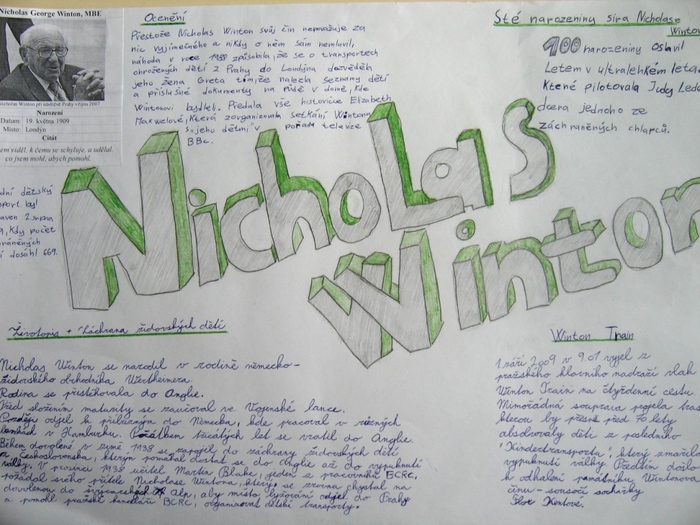 Nicholas George Winton, MBE
Nicholas Winton při návštěvě Prahy v říjnu 2007
Narození
Datum: 19. května 1909
Místo: Londýn
Citát
jsem viděl, k čemu se schyluje, a udělal
co jsem mohl, abych pomohl.
dní dětský
sport byl
aven 2.srpna
9, kdy počet
dosáhl 669.
Ocenění
Přestože Nicholas Winton svůj čin nepovažuje za
nic vyjímečného a nikdy o něm sám nemluvil,
náhoda v roce 1988 způsobila, že se o transportech
ohrožených dětí z Prahy do Londýna dozvěděla
jeho žena Greta tím, že nalezla seznamy dětí
a příslušné dokumenty na půdě v domě, kde
Wintonovi bydleli. Předala vše historičce Elizabeth
Maxwelové, která zorganizovala setkání Wintona
s jeho dětmi v pořadu televize
BBC.
Sté narozeniny sira Nicholase
Wintona
100 narozeniny oslavil
letem v ultralehkém leta
které pilotovala Judy Led
dcera jednoho ze
záchraněných chlapců.
Nicholas
Winton
Životopis + Záchrana židovských dětí
Nicholas Winton se narodil v rodině německo-
židovského obchodníka Wertheimera.
Rodina se přistěhovala do Anglie.
Před složením maturity se zaučoval ve Vojenské lance.
Později odjel k příbuzným do Německa, kde pracoval v různých
bankách v Hamburku. Počátkem třicátých let se vrátil do Anglie.
Během dovolené v zimě 1938 se zapojil do záchrany židovských dětí
z Československa, kterým pomáhal dostat se do Anglie až do vypuknutí
války. V prosinci 1938 učitel Martin Blake, jeden z pracovníků BCRC,
požádal svého přítele Nicholase Wintona, který se zrovna chystal na
dovolenou do švýcarských Alp, aby místo lyžování odjel do Prahy
a pomohl pražské kanceláři BCRC, organizovat dětské transporty.
Winton Train
1. září 2009 v 9.01 vyjel z
pražského hlavního nádraží vlak
Winton Train na čtyřdenní cestu.
Mimořádná souprava projela tras
kterou by přesně před 70 lety
absolvovaly děti z posledního
"Kindertransportu", který zmařilo
vypuknutí války. Předtím došlo
k odhalení památníku Wintonova
činu - sousoší sochařky
Flor Kentové.